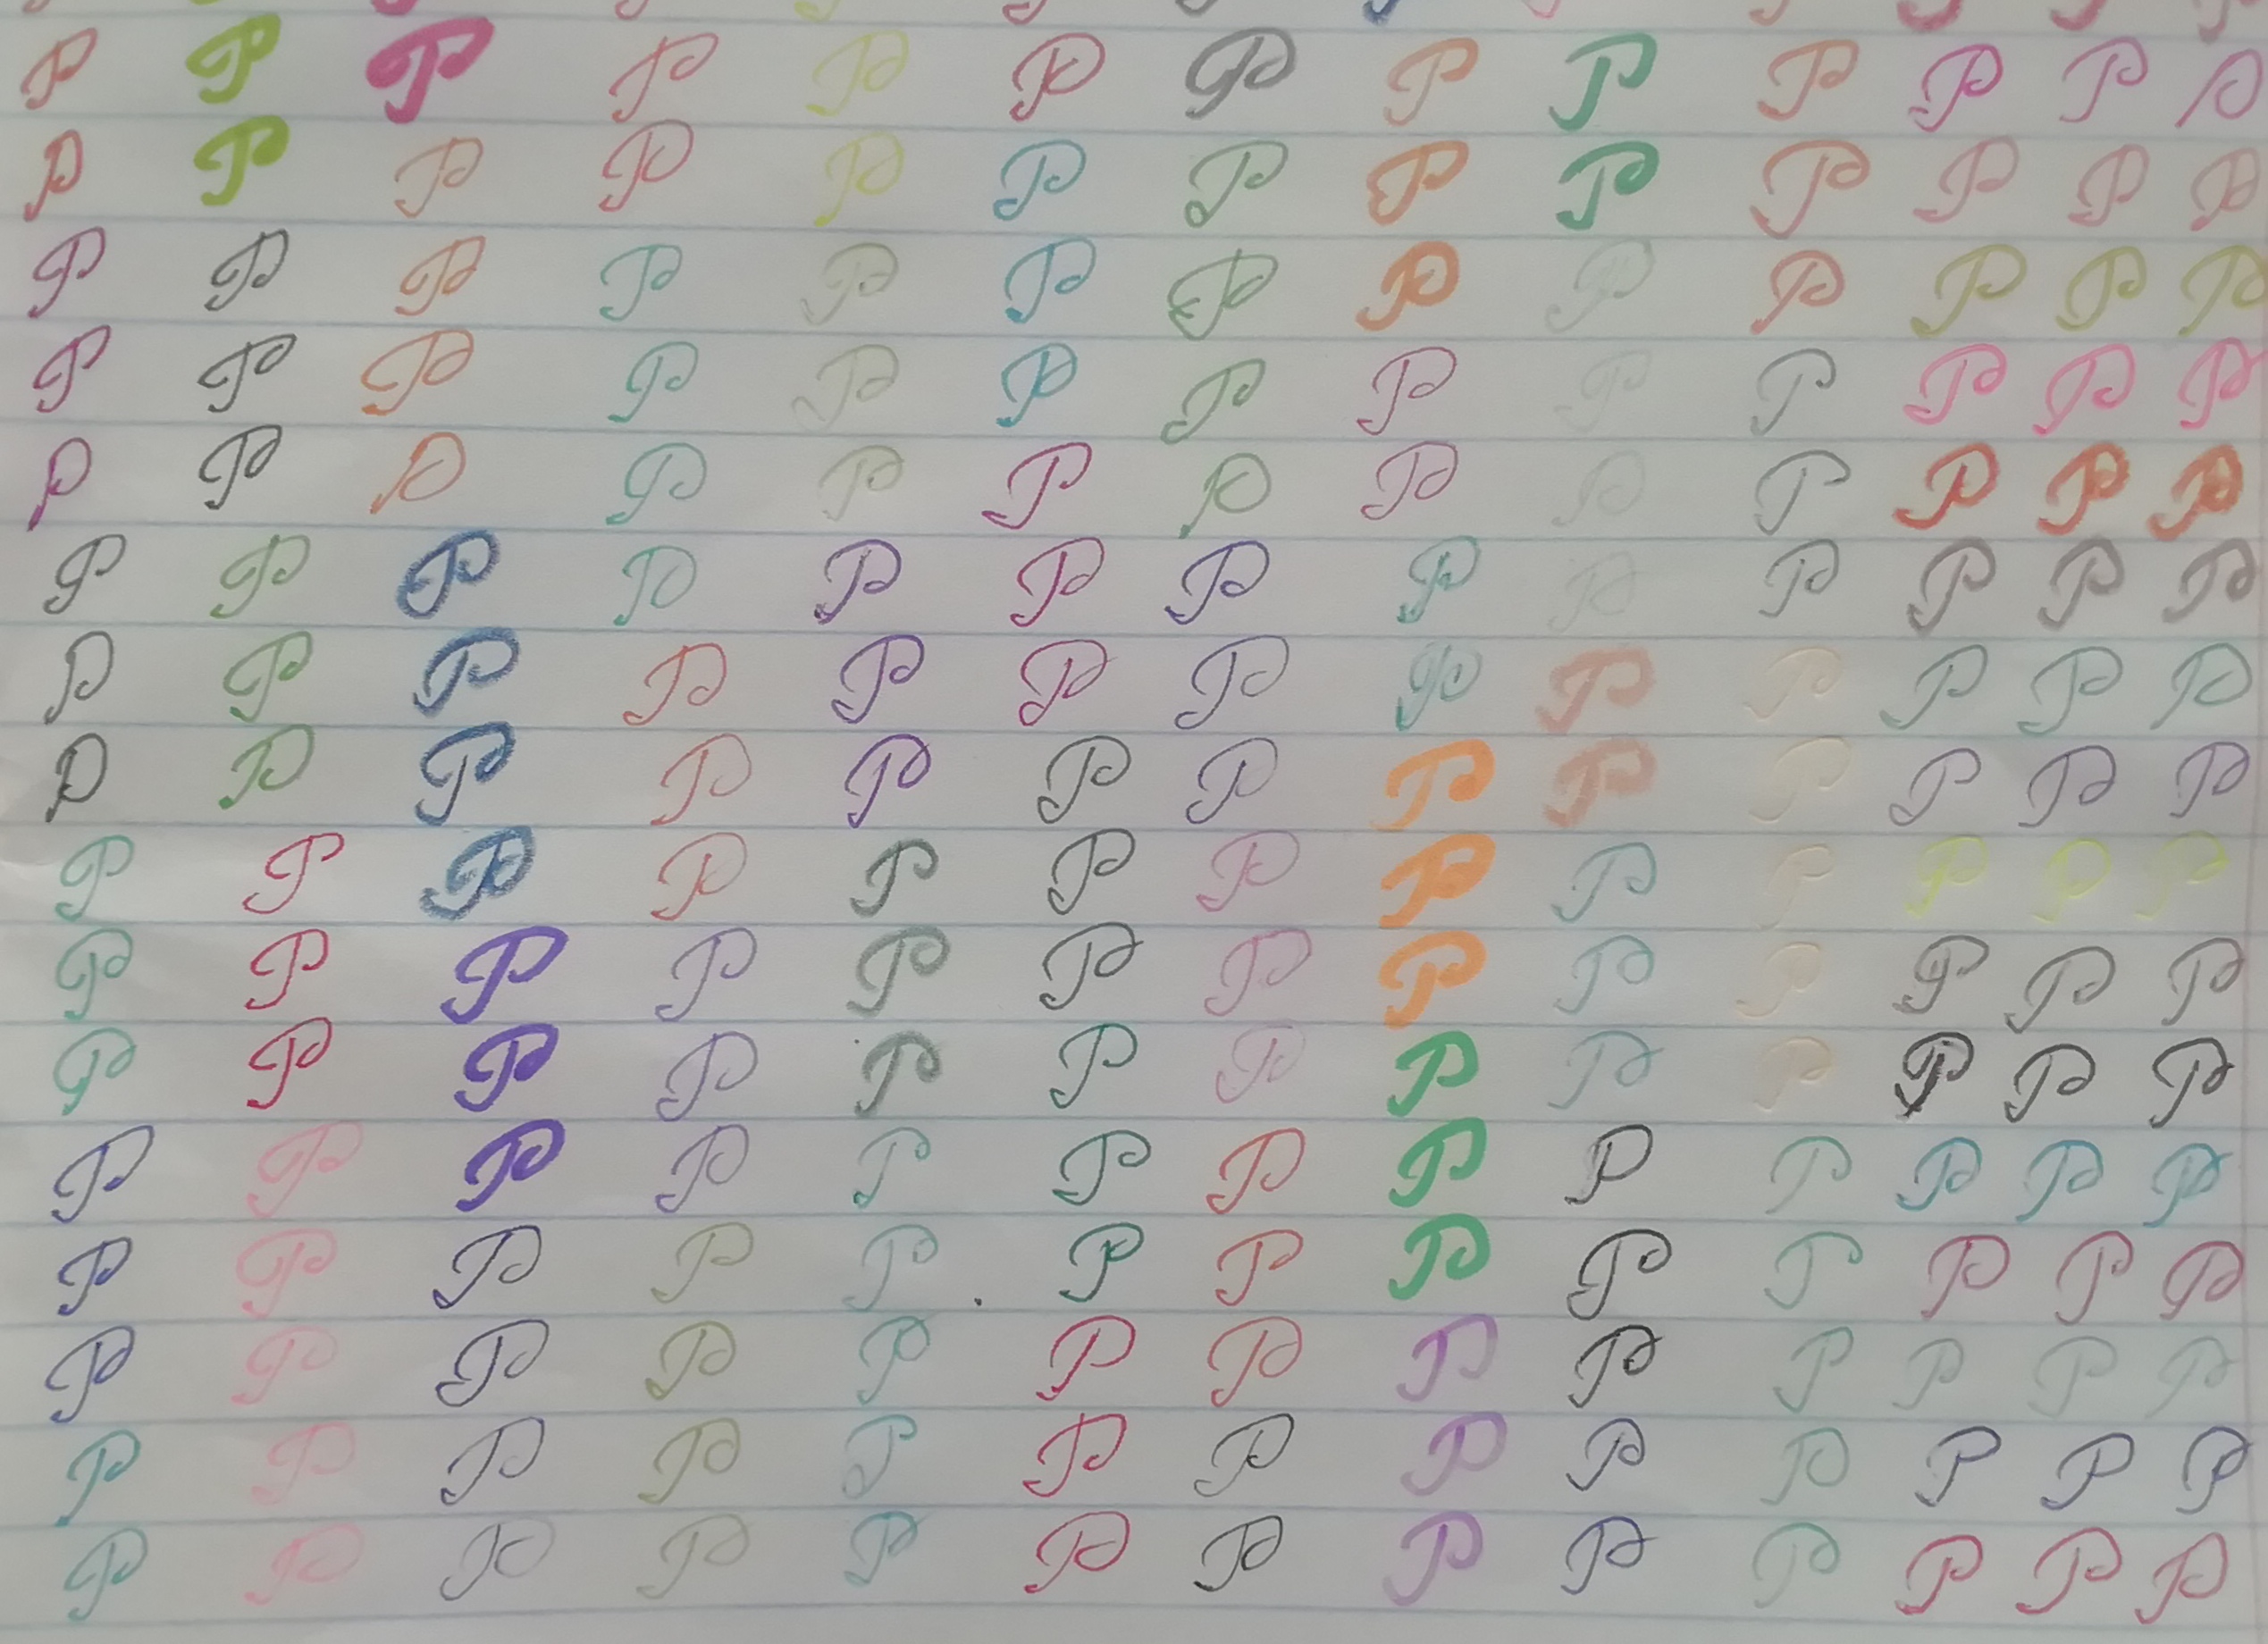 P P P P P P P P P P P P P
P P P P P P P P P P P P P
P P P P P P P P P P P P P
P P P P P P P P P P P P P
P P P P P P P P P P P P P
P P P P P P P P P P P P P
P P P P P P P P P P P P P
P P P P P P P P P P P P P
P P P P P P P P P P P P P
P P P P P P P P P P P P P
P P P P P P P P P P P P P
P P P P P P P P P P P P P
P P P P P P P P P P P P P
P P P P P P P P P P P P P
P P P P P P P P P P P P P
P P P P P P P P P P P P P